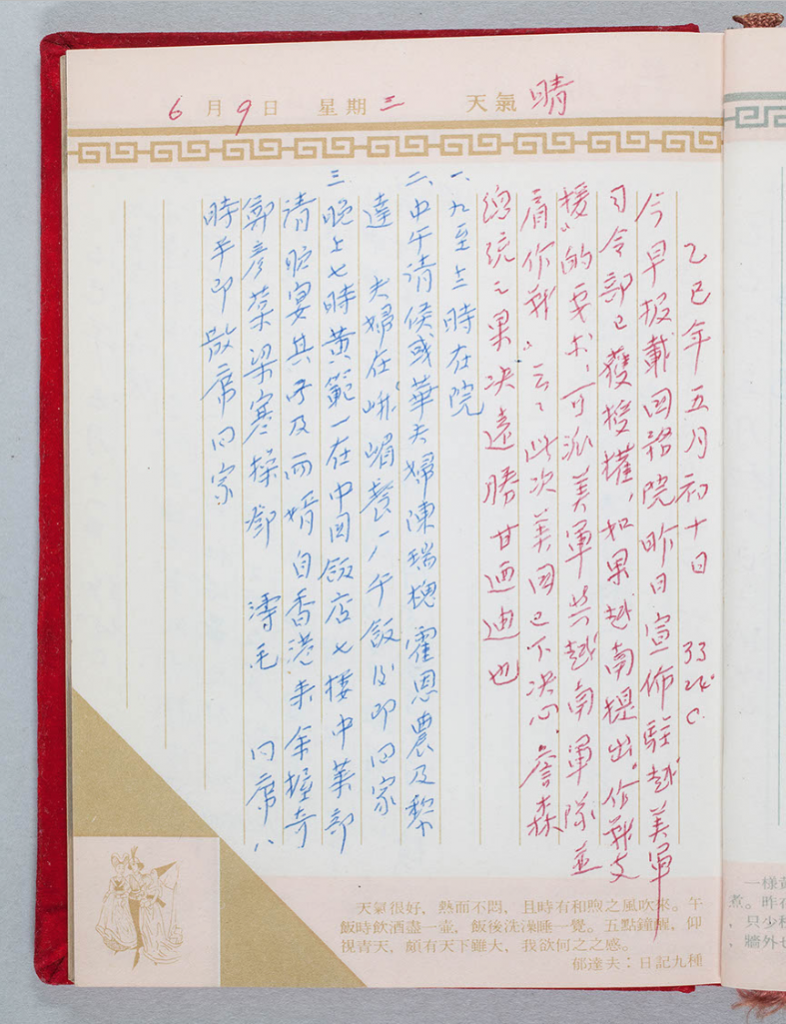 6月9日 星期三 天氣 晴
乙巳年五月初十日 33 24°C
今早报載国務院昨日宣佈駐越美軍
司令部已獲授權，如果越南提出“作戰支
援”的要求，可派美軍共越南軍隊並
肩作战”云云此次美国已下决心，詹森
總统之果决遠勝甘迺迪也
一、九至十二時在院
二、中午请侯或華夫婦陳瑞 霍恩農及黎
達 夫婦在峨嵋餐廳午飯後即回家
三 晚上七時黃範一在中国飯店七樓中菜部
请晚宴其子及两婿自香港来余握奇
鄭彦棻梁寒操鄧 濤毛 同席八
時半即散席回家
天氣很好，熱而不悶，且時有和煦之風吹來。午
飯時飲酒盡一壺，飯後洗澡睡一覺。五點鐘醒，仰
視青天，頗有天下雖大，我欲何之之感。
郁達夫：日記九種
一樣
煮。昨
，只少
，牆外